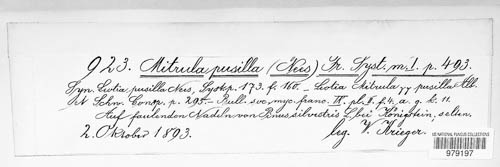 923. Mitrula pusilla (Nees) Fr. Syst. m. I. p. 493.
Syn. Leotia pusilla Nees, Syst. p. 173. f. 160. – Leotia Mitrula γγ pusilla Alb.
et Schn. Consp. p. 295. – Bull. soc. myc. franc. IX. pl. II. f. 4. a. g. t. 11.
Auf faulenden Nadeln von Pinus silvestris L. bei Königstein, selten.
2. Oktober 1893. leg. W. Krieger.
US NATIONAL FUNGUS COLLECTIONS
979197